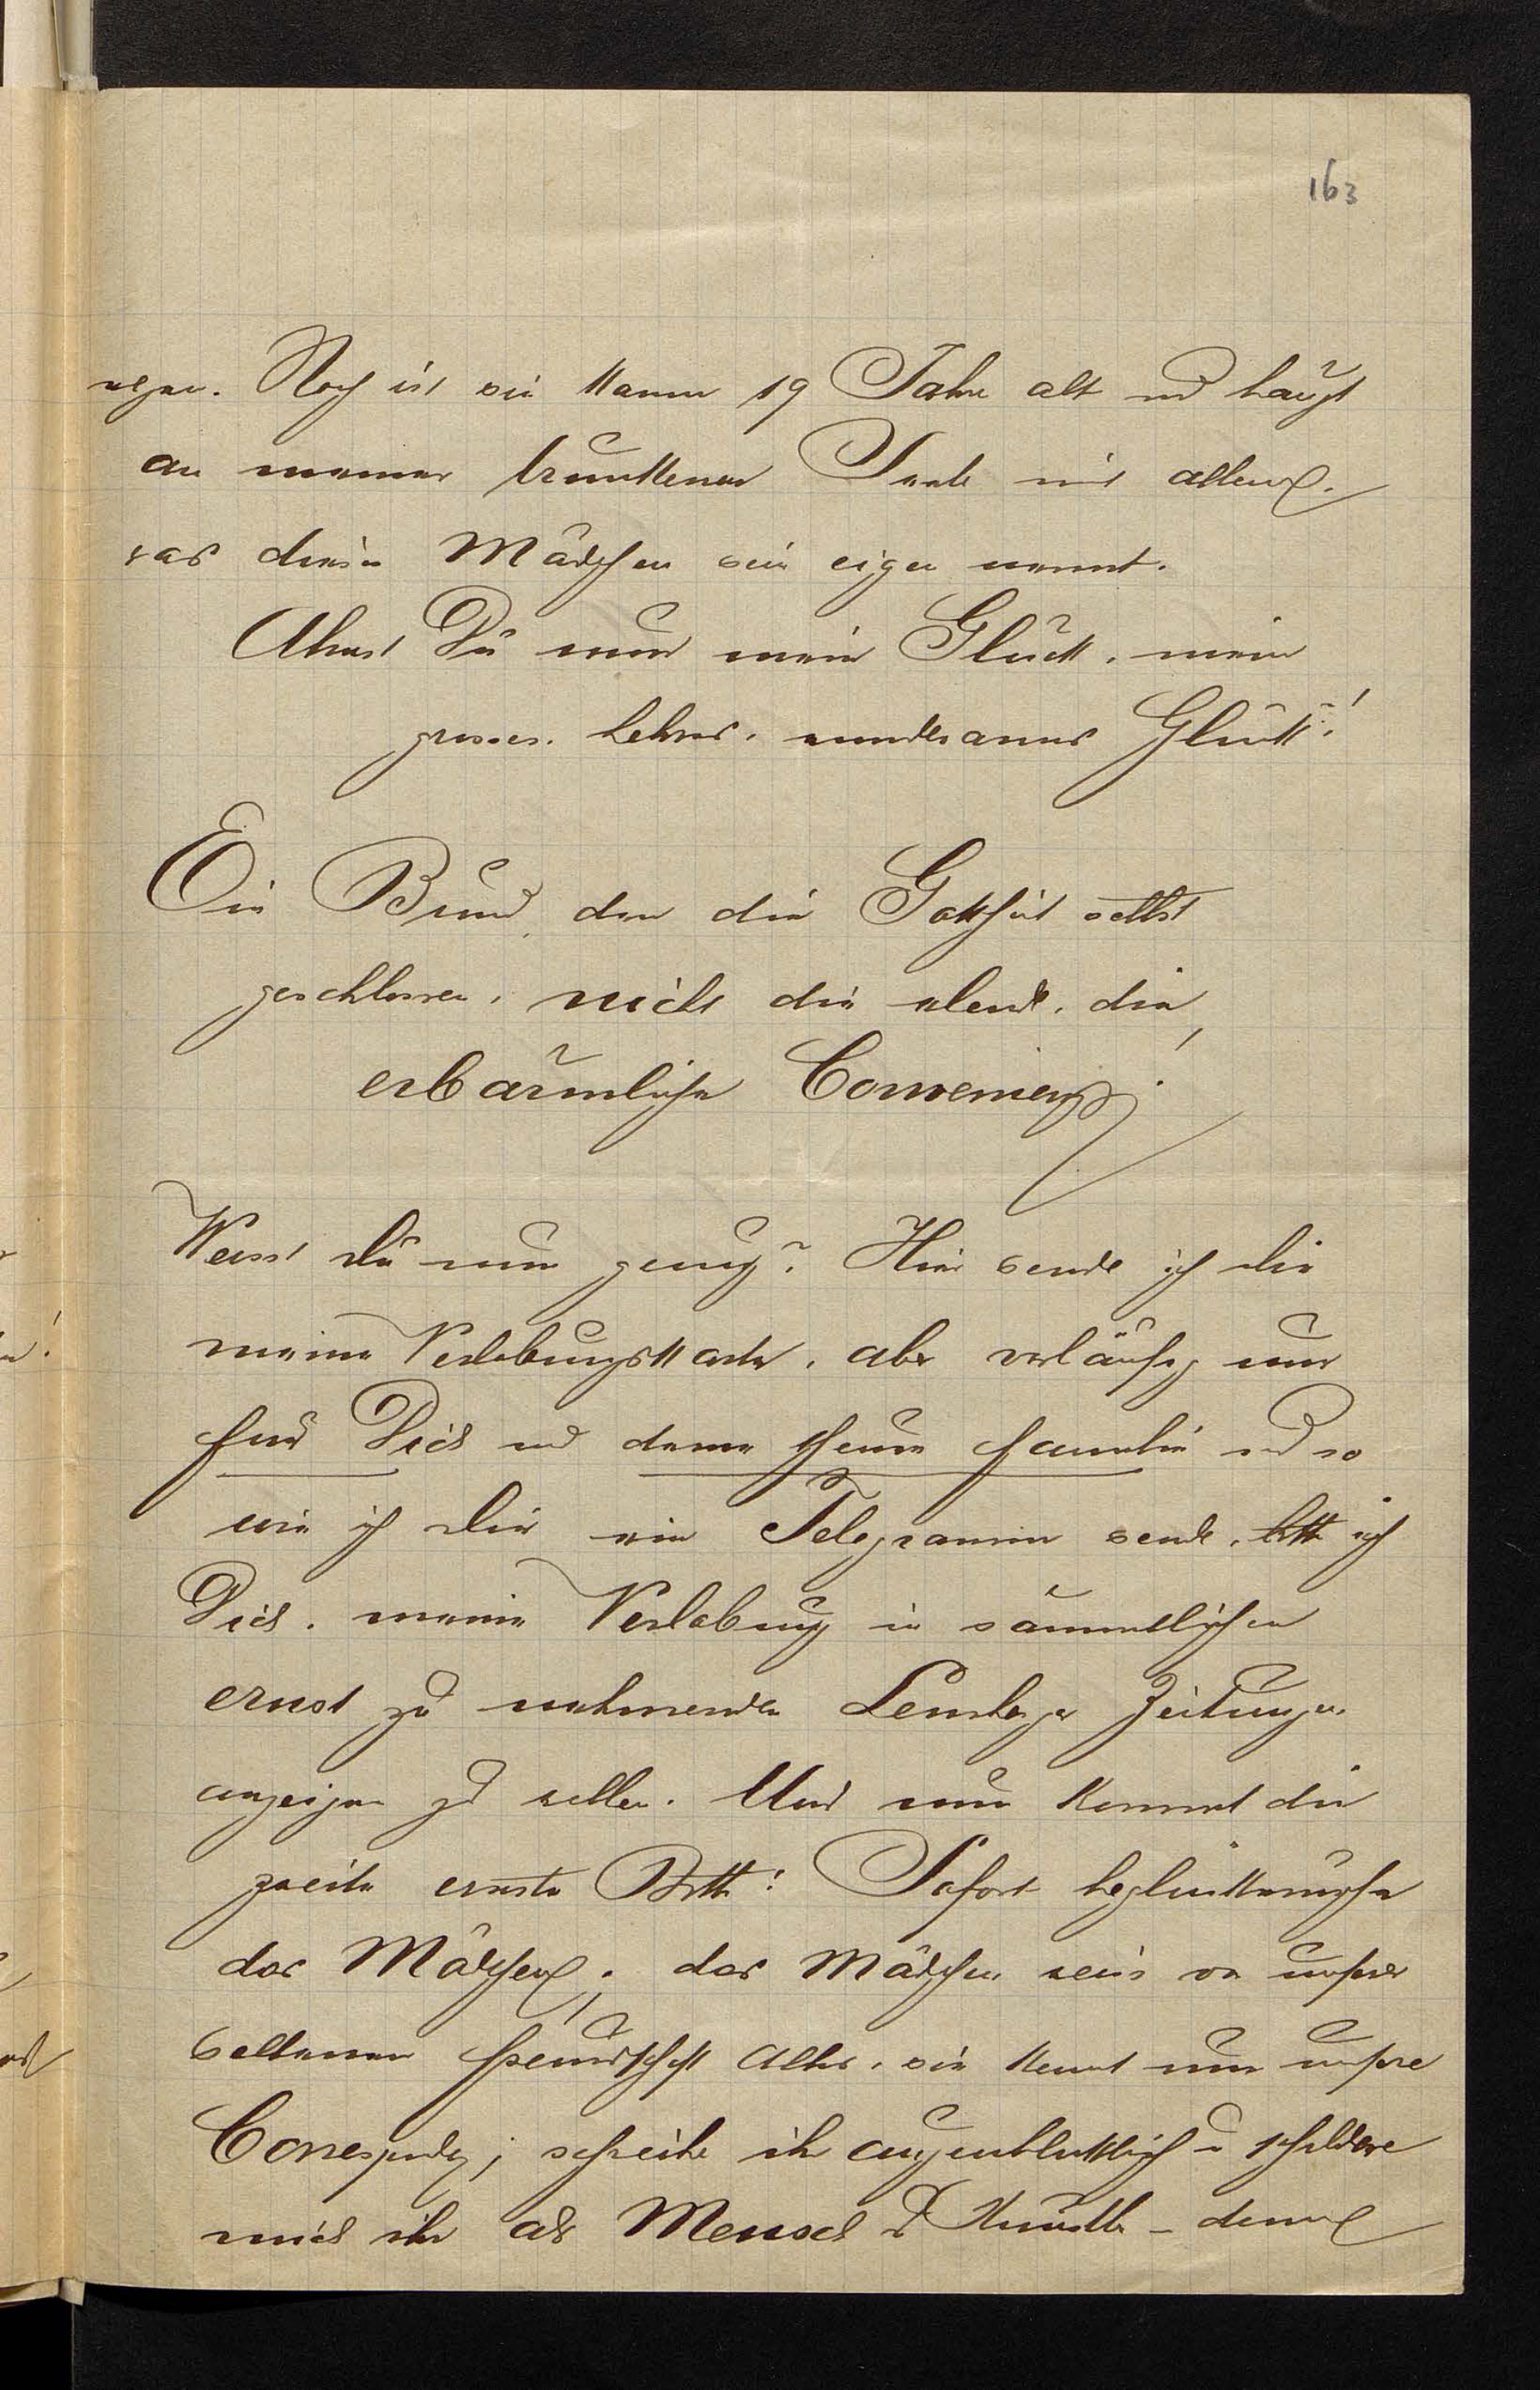 163
Noch ist sie kaum 19 Jahre alt und hängt
an meiner trunkenen Seele mit allem,
was dieses Mädchen sein eigen nennt.
Ahnst Du nun mein Glück, mein
grosses, hehres, wundersames Glück!
Ein Bund, den die Gottheit selbst
geschlossen, nicht die elende, die
erbärmliche Convenienz!
Weisst Du nun genug? Hier sende ich Dir
meine Verlobungskarte, aber vorläufig nur
für Dich und deine theure Familie und so
wie ich Dir ein Telegramm sende, bitte ich
Dich, meine Verlobung in sämmtlichen
ernst zu nehmenden Lemberger Zeitungen
anzeigen zu wollen. Und nun kommt die
zweite ernste Bitte: Sofort beglückwünsche
das Mädchen; das Mädchen weiss von unserer
seltenen Freundschaft Alles, sie kennt nur unsere
Correspondenz; schreibe ihr augenblicklich u schildere
mich ihr als Mensch u Künstler – denn